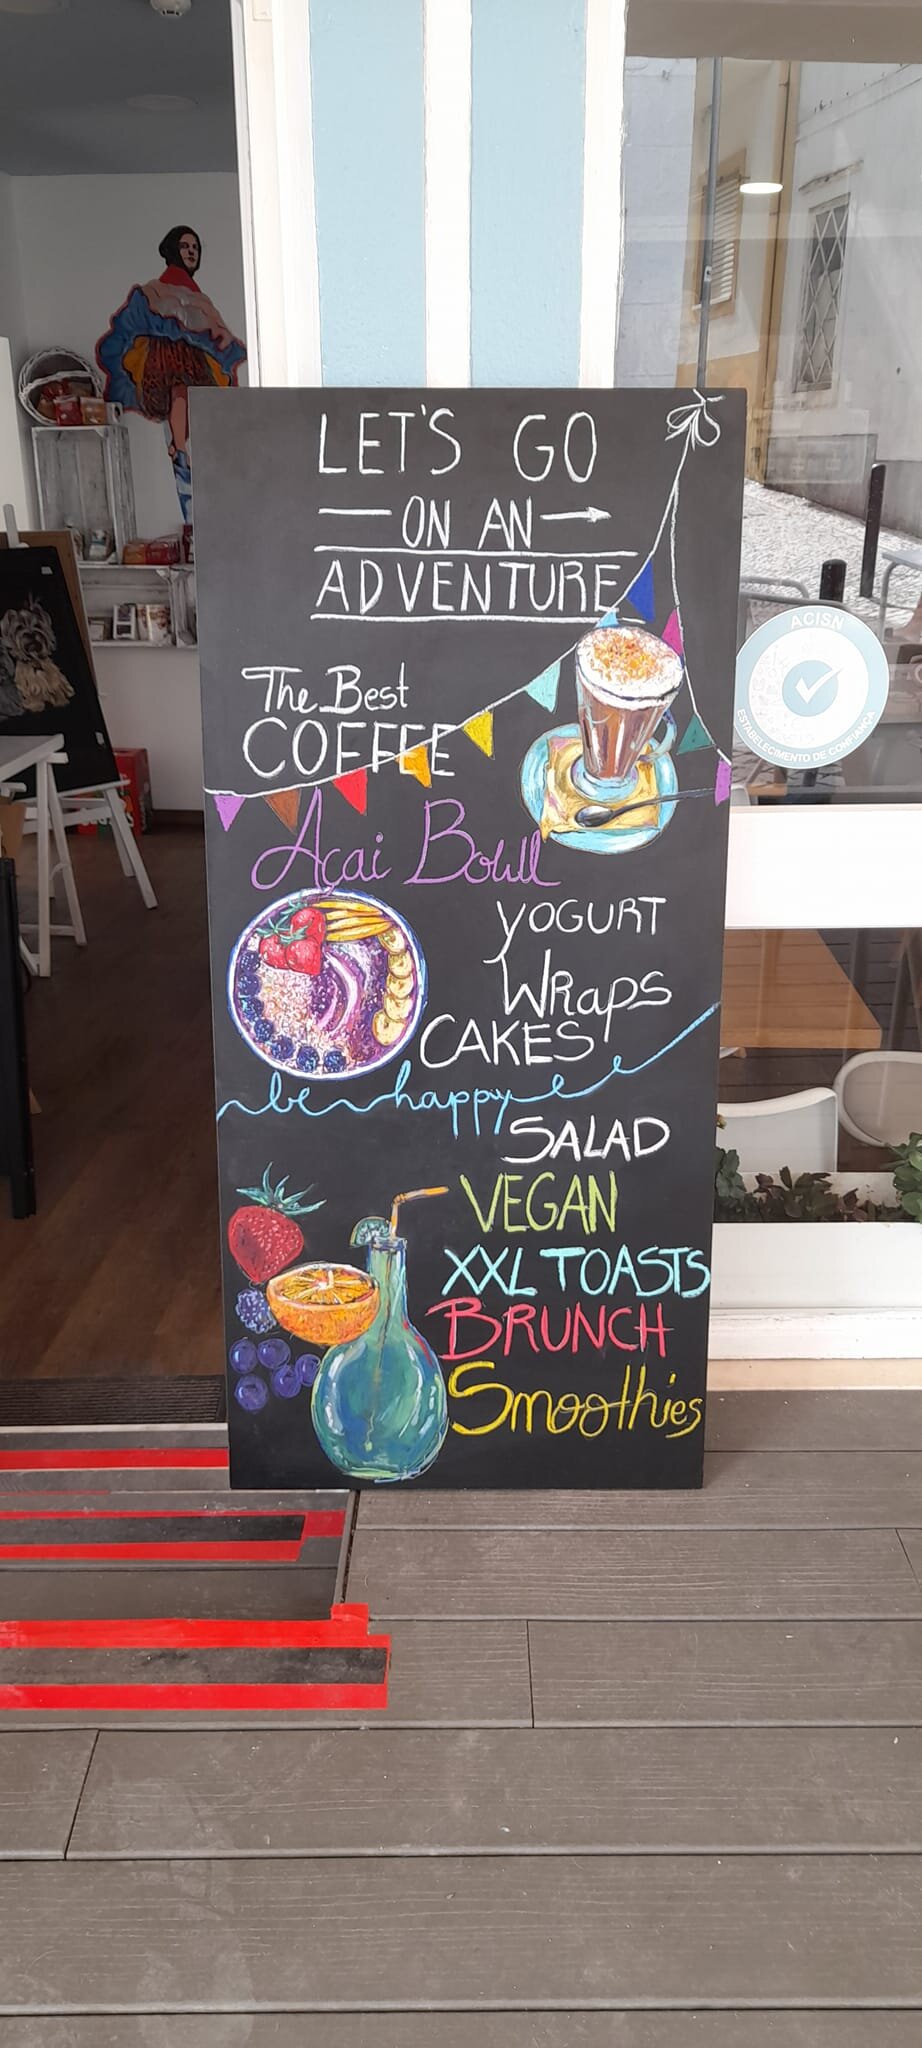 LET'S GO
ON AN
ADVENTURE
The Best
COFFEE
Açai Bowll
YOGURT
WRaps
CAKES
be happy
SALAD
VEGAN
XXL TOASTS
BRUNCH
Smoothies
ACISN
ESTABELECIMENTO DE CONFIANÇA